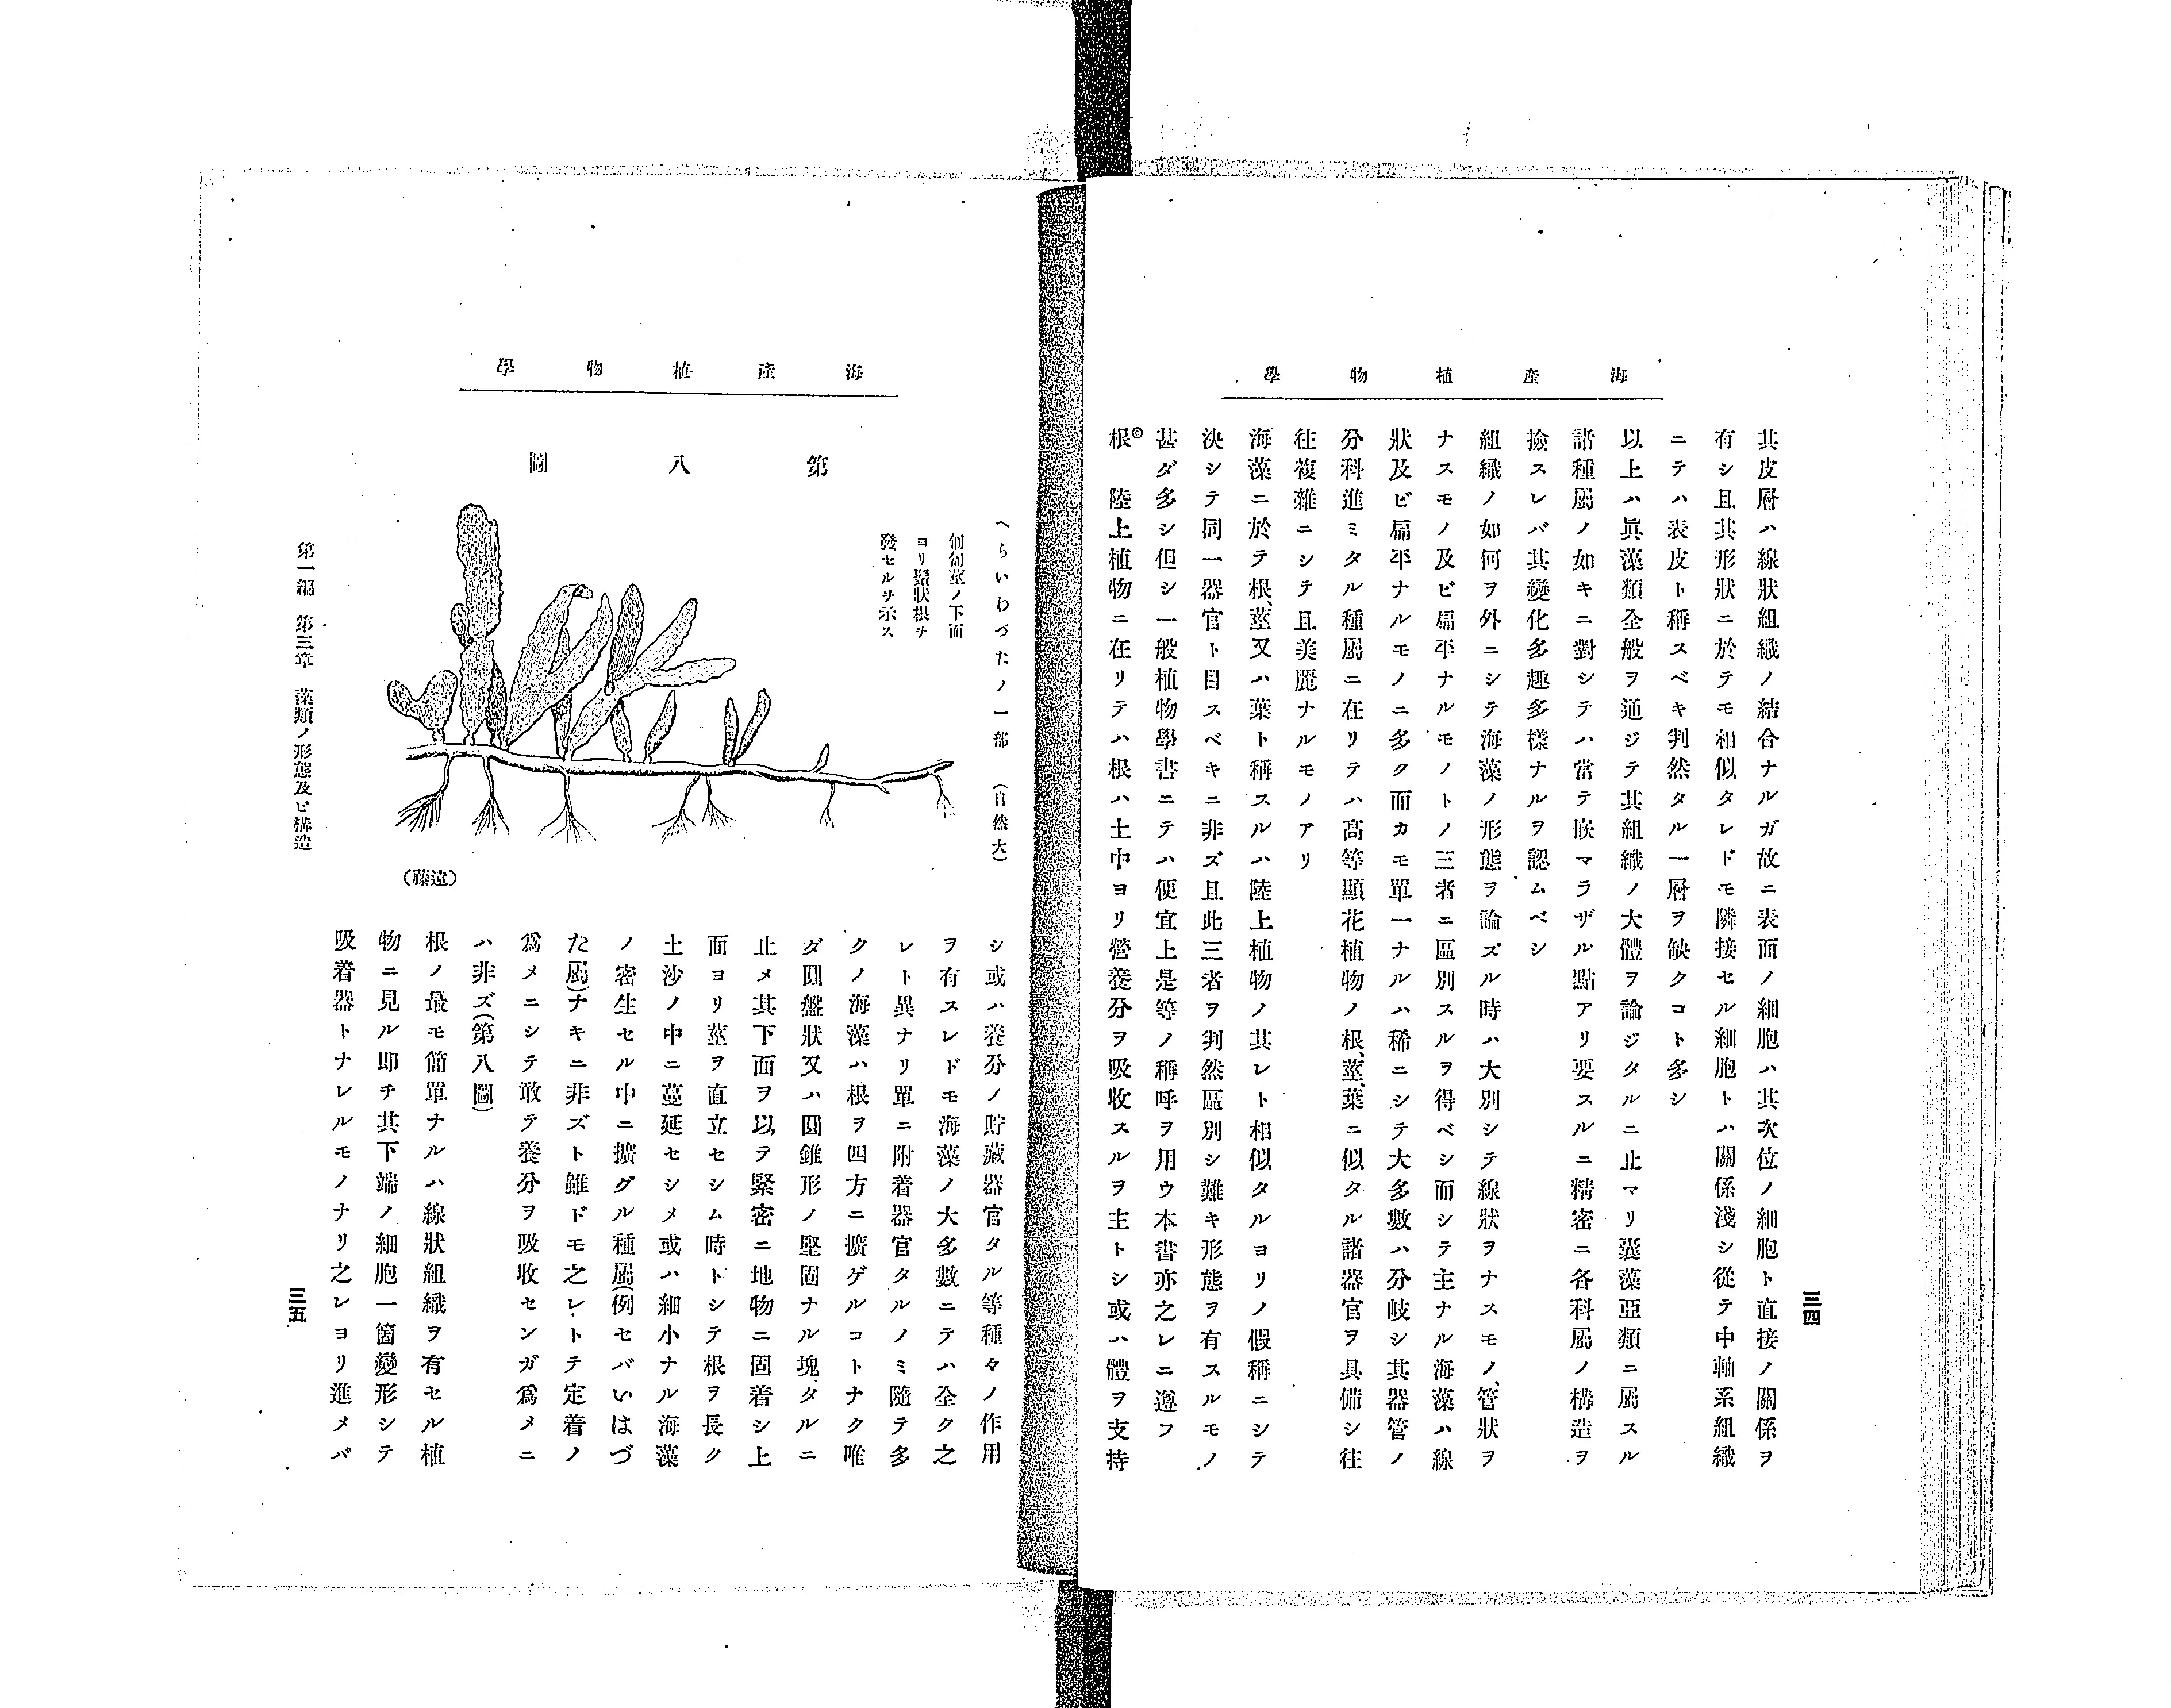 海產植物學
其皮層ハ線狀組織ノ結合ナルガ故ニ表面ノ細胞ハ其次位ノ細胞ト直接ノ關係ヲ
有シ且其形狀ニ於テモ相似タレドモ隣接セル細胞トハ關係淺シ從テ中軸系組織
ニテハ表皮ト稱スベキ判然タル一層ヲ缺クコト多シ
以上ハ眞藻類全般ヲ通ジテ其組織ノ大體ヲ論ジタルニ止マリ囊藻亞類ニ屬スル
諸種屬ノ如キニ對シテハ當テ嵌マラザル點アリ要スルニ精密ニ各科屬ノ構造ヲ
撿スレバ其變化多趣多樣ナルヲ認ムベシ
組織ノ如何ヲ外ニシテ海藻ノ形態ヲ論ズル時ハ大別シテ線狀ヲナスモノ、管狀ヲ
ナスモノ及ビ扁平ナルモノトノ三者ニ區別スルヲ得ベシ而シテ主ナル海藻ハ線
狀及ビ扁平ナルモノニ多ク而カモ單一ナルハ稀ニシテ大多數ハ分岐シ其器管ノ
分科進ミタル種屬ニ在リテハ高等顯花植物ノ根、莖、葉ニ似タル諸器官ヲ具備シ往
往複雜ニシテ且美麗ナルモノアリ
海藻ニ於テ根、莖又ハ葉ト稱スルハ陸上植物ノ其レト相似タルヨリノ假稱ニシテ
決シテ同一器官ト目スベキニ非ズ且此三者ヲ判然區別シ難キ形態ヲ有スルモノ
甚ダ多シ但シ一般植物學書ニテハ便宜上是等ノ稱呼ヲ用ウ本書亦之レニ遵フ
根◎ 陸上植物ニ在リテハ根ハ土中ヨリ營養分ヲ吸收スルヲ主トシ或ハ體ヲ支持
三四
海產植物學
第八圖
へらいわづたノ一部 (自然大)
匍匐莖ノ下面
ヨリ鬚狀根ヲ
發セルヲ示ス
(遠藤)
シ或ハ養分ノ貯藏器官タル等種々ノ作用
ヲ有スレドモ海藻ノ大多數ニテハ全ク之
レト異ナリ單ニ附着器官タルノミ隨テ多
クノ海藻ハ根ヲ四方ニ擴ゲルコトナク唯
ダ圓盤狀又ハ圓錐形ノ堅固ナル塊タルニ
止メ其下面ヲ以テ緊密ニ地物ニ固着シ上
面ヨリ莖ヲ直立セシム時トシテ根ヲ長ク
土沙ノ中ニ蔓延セシメ或ハ細小ナル海藻
ノ密生セル中ニ擴グル種屬(例セバいはづ
た屬)ナキニ非ズト雖ドモ之レトテ定着ノ
爲メニシテ敢テ養分ヲ吸收センガ爲メニ
ハ非ズ(第八圖)
根ノ最モ簡單ナルハ線狀組織ヲ有セル植
物ニ見ル卽チ其下端ノ細胞一箇變形シテ
吸着器トナレルモノナリ之レヨリ進メバ
第一編 第三章 藻類ノ形態及ビ構造
三五